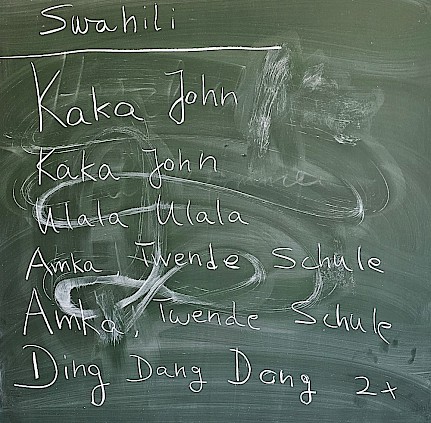 Swahili
Kaka John
Kaka John
Ulala Ulala
Amka Twende Schule
Amka, Twende Schule
Ding Dang Dong 2x